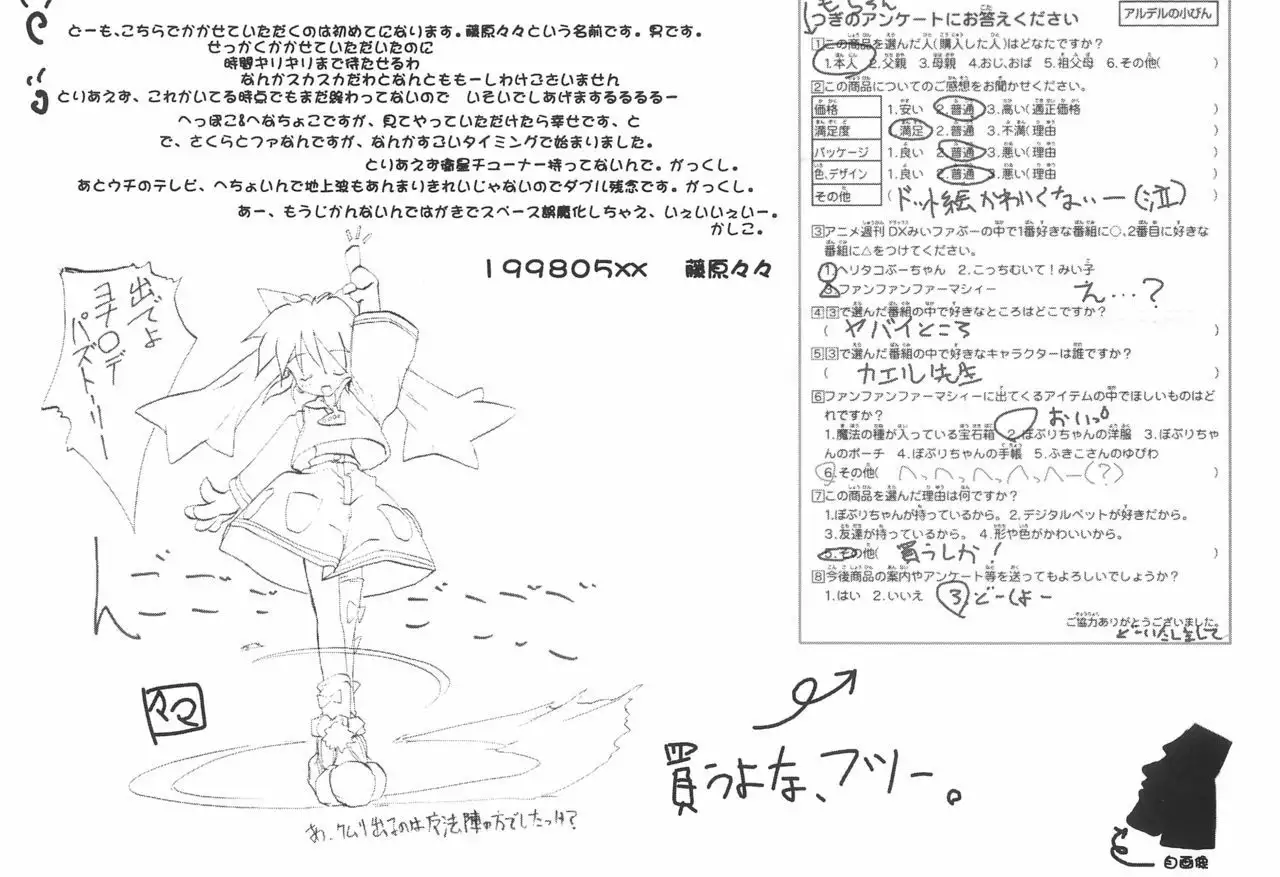 どーも、こちらでかかせていただくのは初めてになります。藤原々々という名前です。男です。
せっかくかかせていただいたのに
時間ギリギリまで待たせるわ
なんかスカスカだわとなんとももーしわけございません
とりあえず、これかいてる時点でもまだ終わってないので　いそいでしあげまするるるるー
へっぽこ&へなちょこですが、見てやっていただけたら幸せです、と
で、さくらとファなんですが、なんかすごいタイミングで始まりました。
とりあえず衛星チューナー持ってないんで。がっくし。
あとウチのテレビ、へちょいんで地上波もあんまりきれいじゃないのでダブル残念です。がっくし。
あー、もうじかんないんではがきでスペース誤魔化しちゃえ、いぇいいぇいー。
かしこ。
199805xx　藤原々々
出でよ
ヨナ〇デ
パストリー
あ、ケムリ出るのは魔法陣の方でしたっけ?
もちろん
つぎのアンケートにお答えください
アルデルの小びん
1この商品を選んだ人(購入した人)はどなたですか?
1.本人 2.父親 3.母親 4.おじ、おば 5.祖父母 6.その他( )
2この商品についてのご感想をお聞かせください。
価格 1.安い 2.普通 3.高い(適正価格 )
満足度 満足 2.普通 3.不満(理由 )
パッケージ 1.良い 2.普通 3.悪い(理由 )
色、デザイン 1.良い 2.普通 3.悪い(理由 )
その他 (ドット絵かわいくないー(泣) )
3アニメ週刊DXみいファぷーの中で1番好きな番組に○、2番目に好きな
番組に△をつけてください。
1.ヘリタコぶーちゃん 2.こっちむいて!みい子
3.ファンファンファーマシィー
え…?
4 3で選んだ番組の中で好きなところはどこですか?
( ヤバイところ )
5 3で選んだ番組の中で好きなキャラクターは誰ですか?
( カエル先生 )
6ファンファンファーマシィーに出てくるアイテムの中でほしいものはど
れですか?
おいっ
1.魔法の種が入っている宝石箱 2.ぽぷりちゃんの洋服 3.ぽぷりちゃ
んのポーチ 4.ぽぷりちゃんの手帳 5.ふきこさんのゆびわ
6.その他( へっへっへっへー(?) )
7この商品を選んだ理由は何ですか?
1.ぽぷりちゃんが持っているから。 2.デジタルペットが好きだから。
3.友達が持っているから。 4.形や色がかわいいから。
5.その他( 買うしか! )
8今後商品の案内やアンケート等を送ってもよろしいでしょうか?
1.はい 2.いいえ 3 どーしよー
ご協力ありがとうございました。
どーいたしまして
買うよな、フツー。
自画像